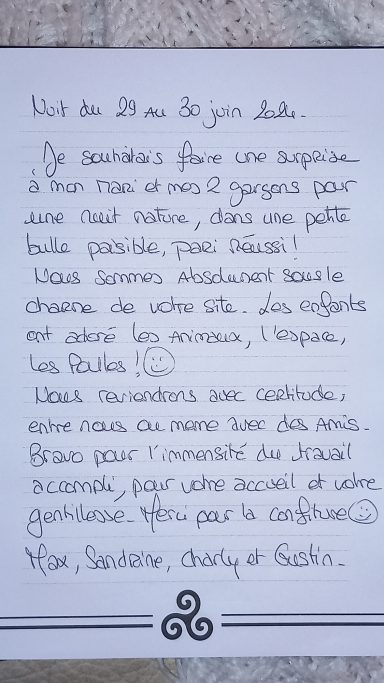 Nuit du 29 au 30 juin 2024.
Je souhaitais faire une surprise
à mon mari et mes 2 garçons pour
une nuit nature, dans une petite
bulle paisible, pari réussi !
Nous sommes Absolument sous le
charme de votre site. Les enfants
ont adoré les Animaux, l'espace,
les Poules ! ☺
Nous reviendrons avec certitude,
entre nous ou même avec des Amis.
Bravo pour l'immensité du travail
accompli, pour votre accueil et votre
gentillesse. Merci pour la confiture ☺
Max, Sandraine, Charly et Gustin.